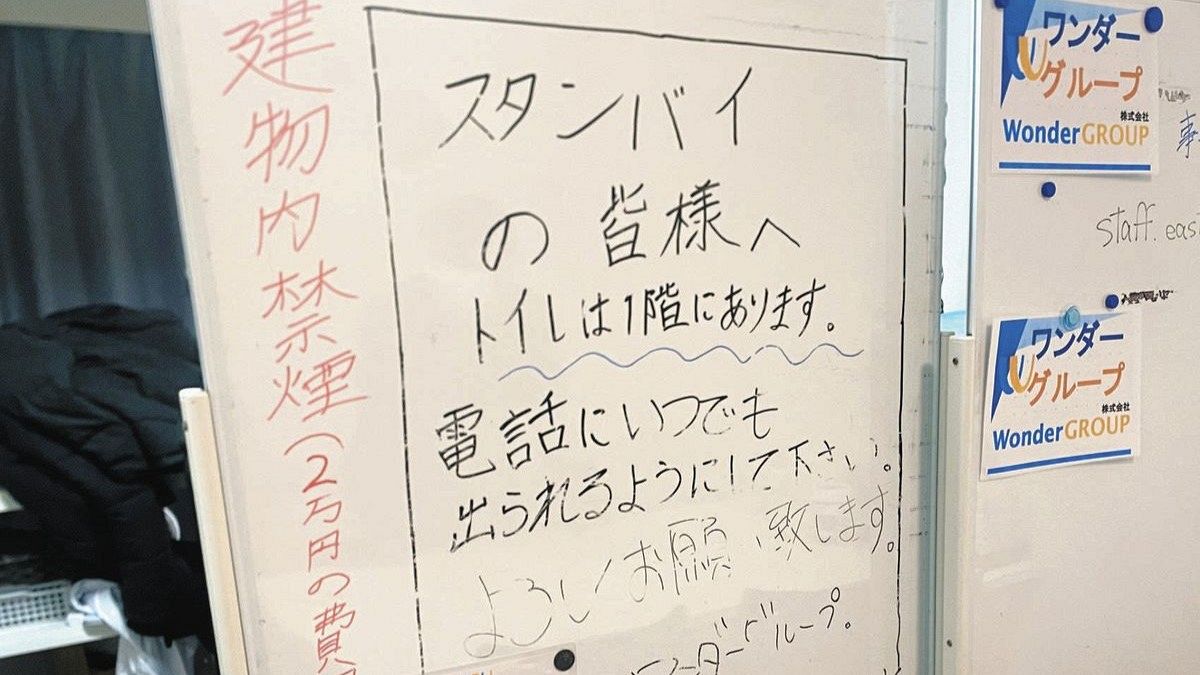 建物内禁煙(2万円の費
スタンバイ
の皆様へ
トイレは1階にあります。
電話にいつでも
出られるようにして下さい。
よろしくお願い致します。
ワンダーグループ。
ワンダー
グループ
株式会社
WonderGROUP
事
staff.eas
ワンダー
グループ
株式会社
WonderGROUP